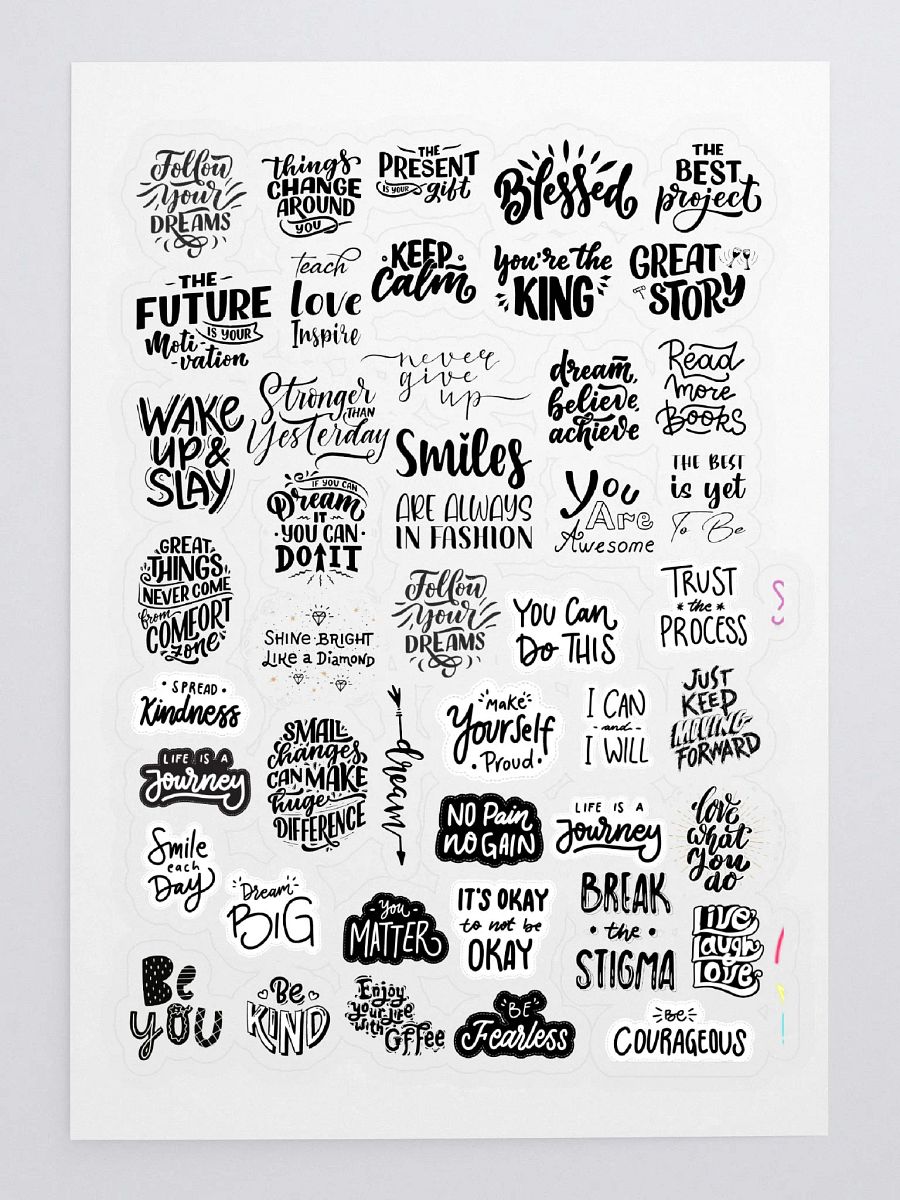 Follow
Your
DREAMS
things
CHANGE
AROUND
YOU
THE
PRESENT
IS YOUR
gift
Blessed
THE
BEST
project
THE
FUTURE
IS YOUR
Moti-
-vation
teach
Love
Inspire
KEEP
Calm
You're the
KING
GREAT
STORY
never
give
up
dream,
believe,
achieve
Read
More
Books
WAKE
UP &
SLAY
Stronger
THAN
Yesterday
Smiles
ARE ALWAYS
IN FASHION
IF YOU CAN
Dream
IT
YOU CAN
DO IT
You
Are
Awesome
THE BEST
is yet
To Be
GREAT
THINGS
NEVER COME
from
COMFORT
zone
SHINE BRIGHT
LIKE a DIAMOND
Follow
Your
DREAMS
YOU Can
Do THIS
TRUST
the
PROCESS
S
SPREAD
Kindness
SMALL
changes
CAN MAKE
huge
DIFFERENCE
dream
Make
Yourself
Proud
I CAN
and
I WILL
JUST
KEEP
MOVING
FORWARD
LIFE IS A
Journey
NO Pain
NO GAIN
LIFE IS A
Journey
love
what
you
do
Smile
each
Day
Dream
BIG
You
MATTER
IT'S OKAY
to not be
OKAY
BREAK
the
STIGMA
Live
Laugh
Love
Be
YOU
Be
KIND
Enjoy
your life
with
Coffee
BE
Fearless
BE
COURAGEOUS